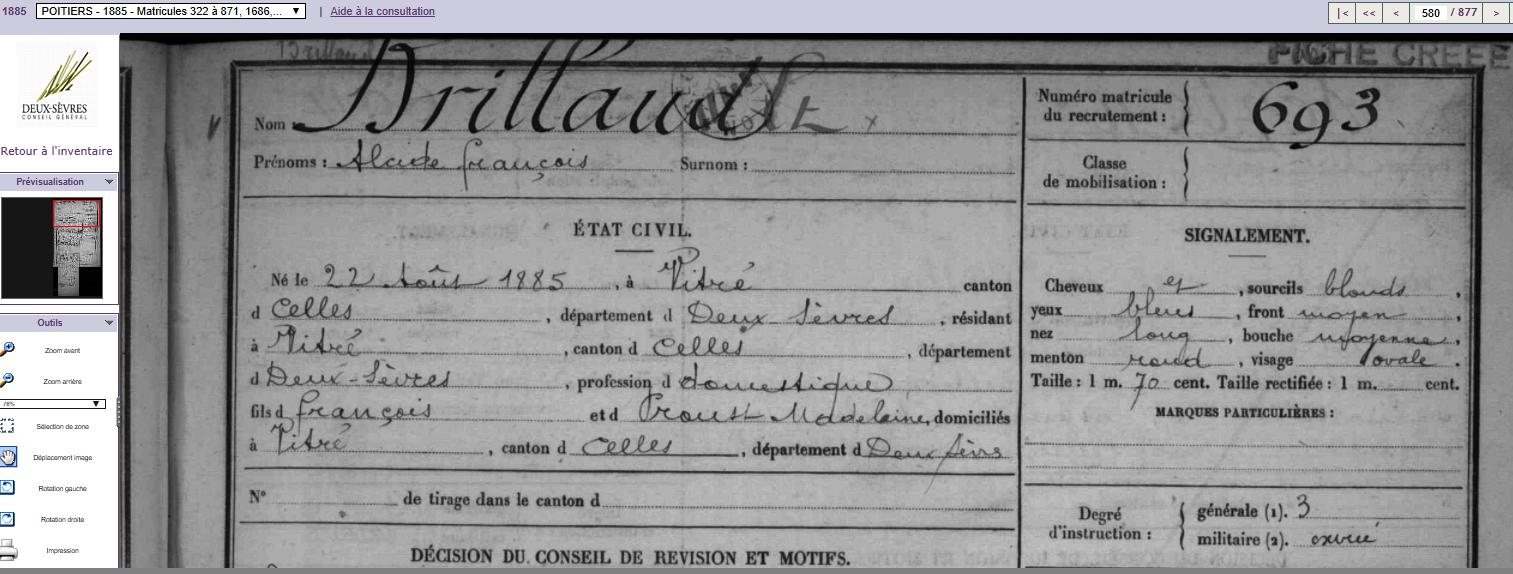 1885 POITIERS - 1885 - Matricules 322 à 871, 1686,... | Aide à la consultation |< << < 580 / 877 >
DEUX-SÈVRES
CONSEIL GÉNÉRAL
Retour à l'inventaire
Prévisualisation
Outils
Zoom avant
Zoom arrière
76%
Sélection de zone
Déplacement image
Rotation gauche
Rotation droite
Impression
Brillaud
FICHE CRÉÉE
Nom Brillaud
Prénoms : Alcide françois Surnom :
Numéro matricule
du recrutement : 693
Classe
de mobilisation :
ÉTAT CIVIL.
Né le 22 Août 1885, à Vitré canton
d Celles, département d Deux Sèvres, résidant
à Vitré, canton d Celles, département
d Deux-Sèvres, profession d domestique
fils d françois et d Proust Madelaine, domiciliés
à Vitré, canton d Celles, département d Deux Sèvres
N° de tirage dans le canton d
DÉCISION DU CONSEIL DE REVISION ET MOTIFS.
SIGNALEMENT.
Cheveux et, sourcils blonds,
yeux bleus, front moyen,
nez long, bouche moyenne,
menton rond, visage ovale.
Taille : 1 m. 70 cent. Taille rectifiée : 1 m. cent.
MARQUES PARTICULIÈRES :
Degré
d'instruction :
générale (1). 3
militaire (2). exercé